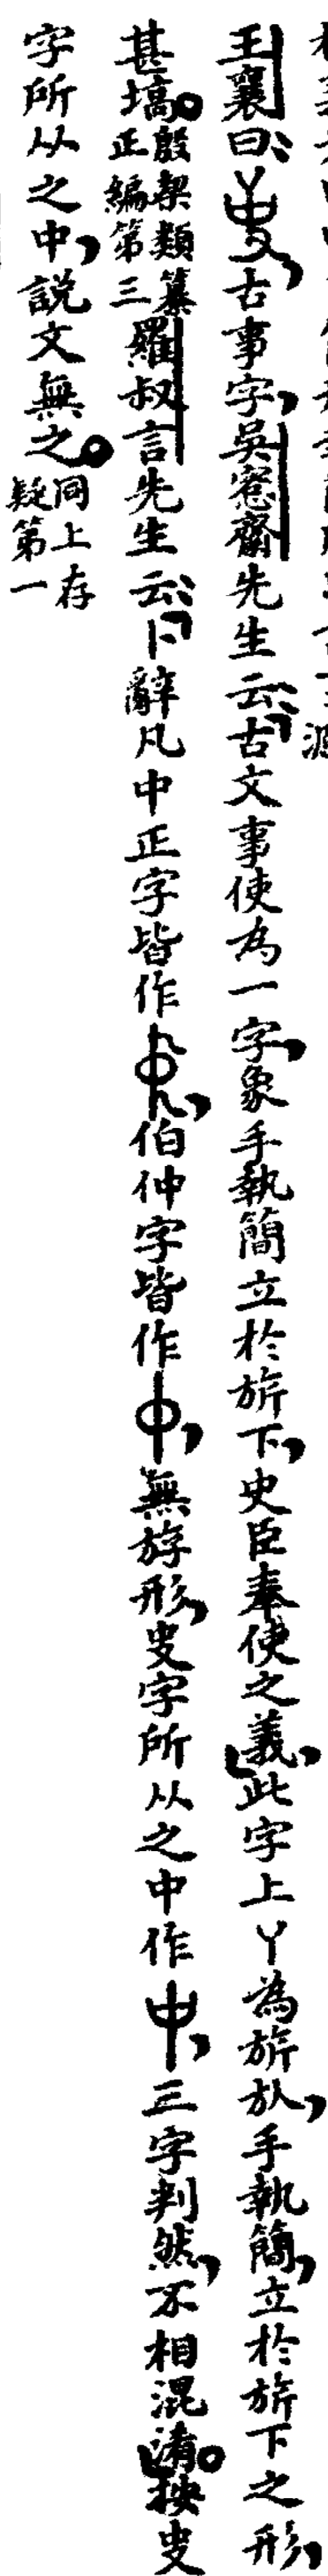 王襄曰：古事字，吳愙齋先生云：「古文事使為一字，象手執簡立於旂下，史臣奉使之義」，此字上丫為旂㫃，手執簡，立於旂下之形，
甚塙。殷契類纂正編第三羅叔言先生云：「卜辭凡中正字皆作，伯仲字皆作中，無斿形，史字所从之中作，三字判然，不相混淆」。按史
字所从之中，說文無之。同上存疑第一